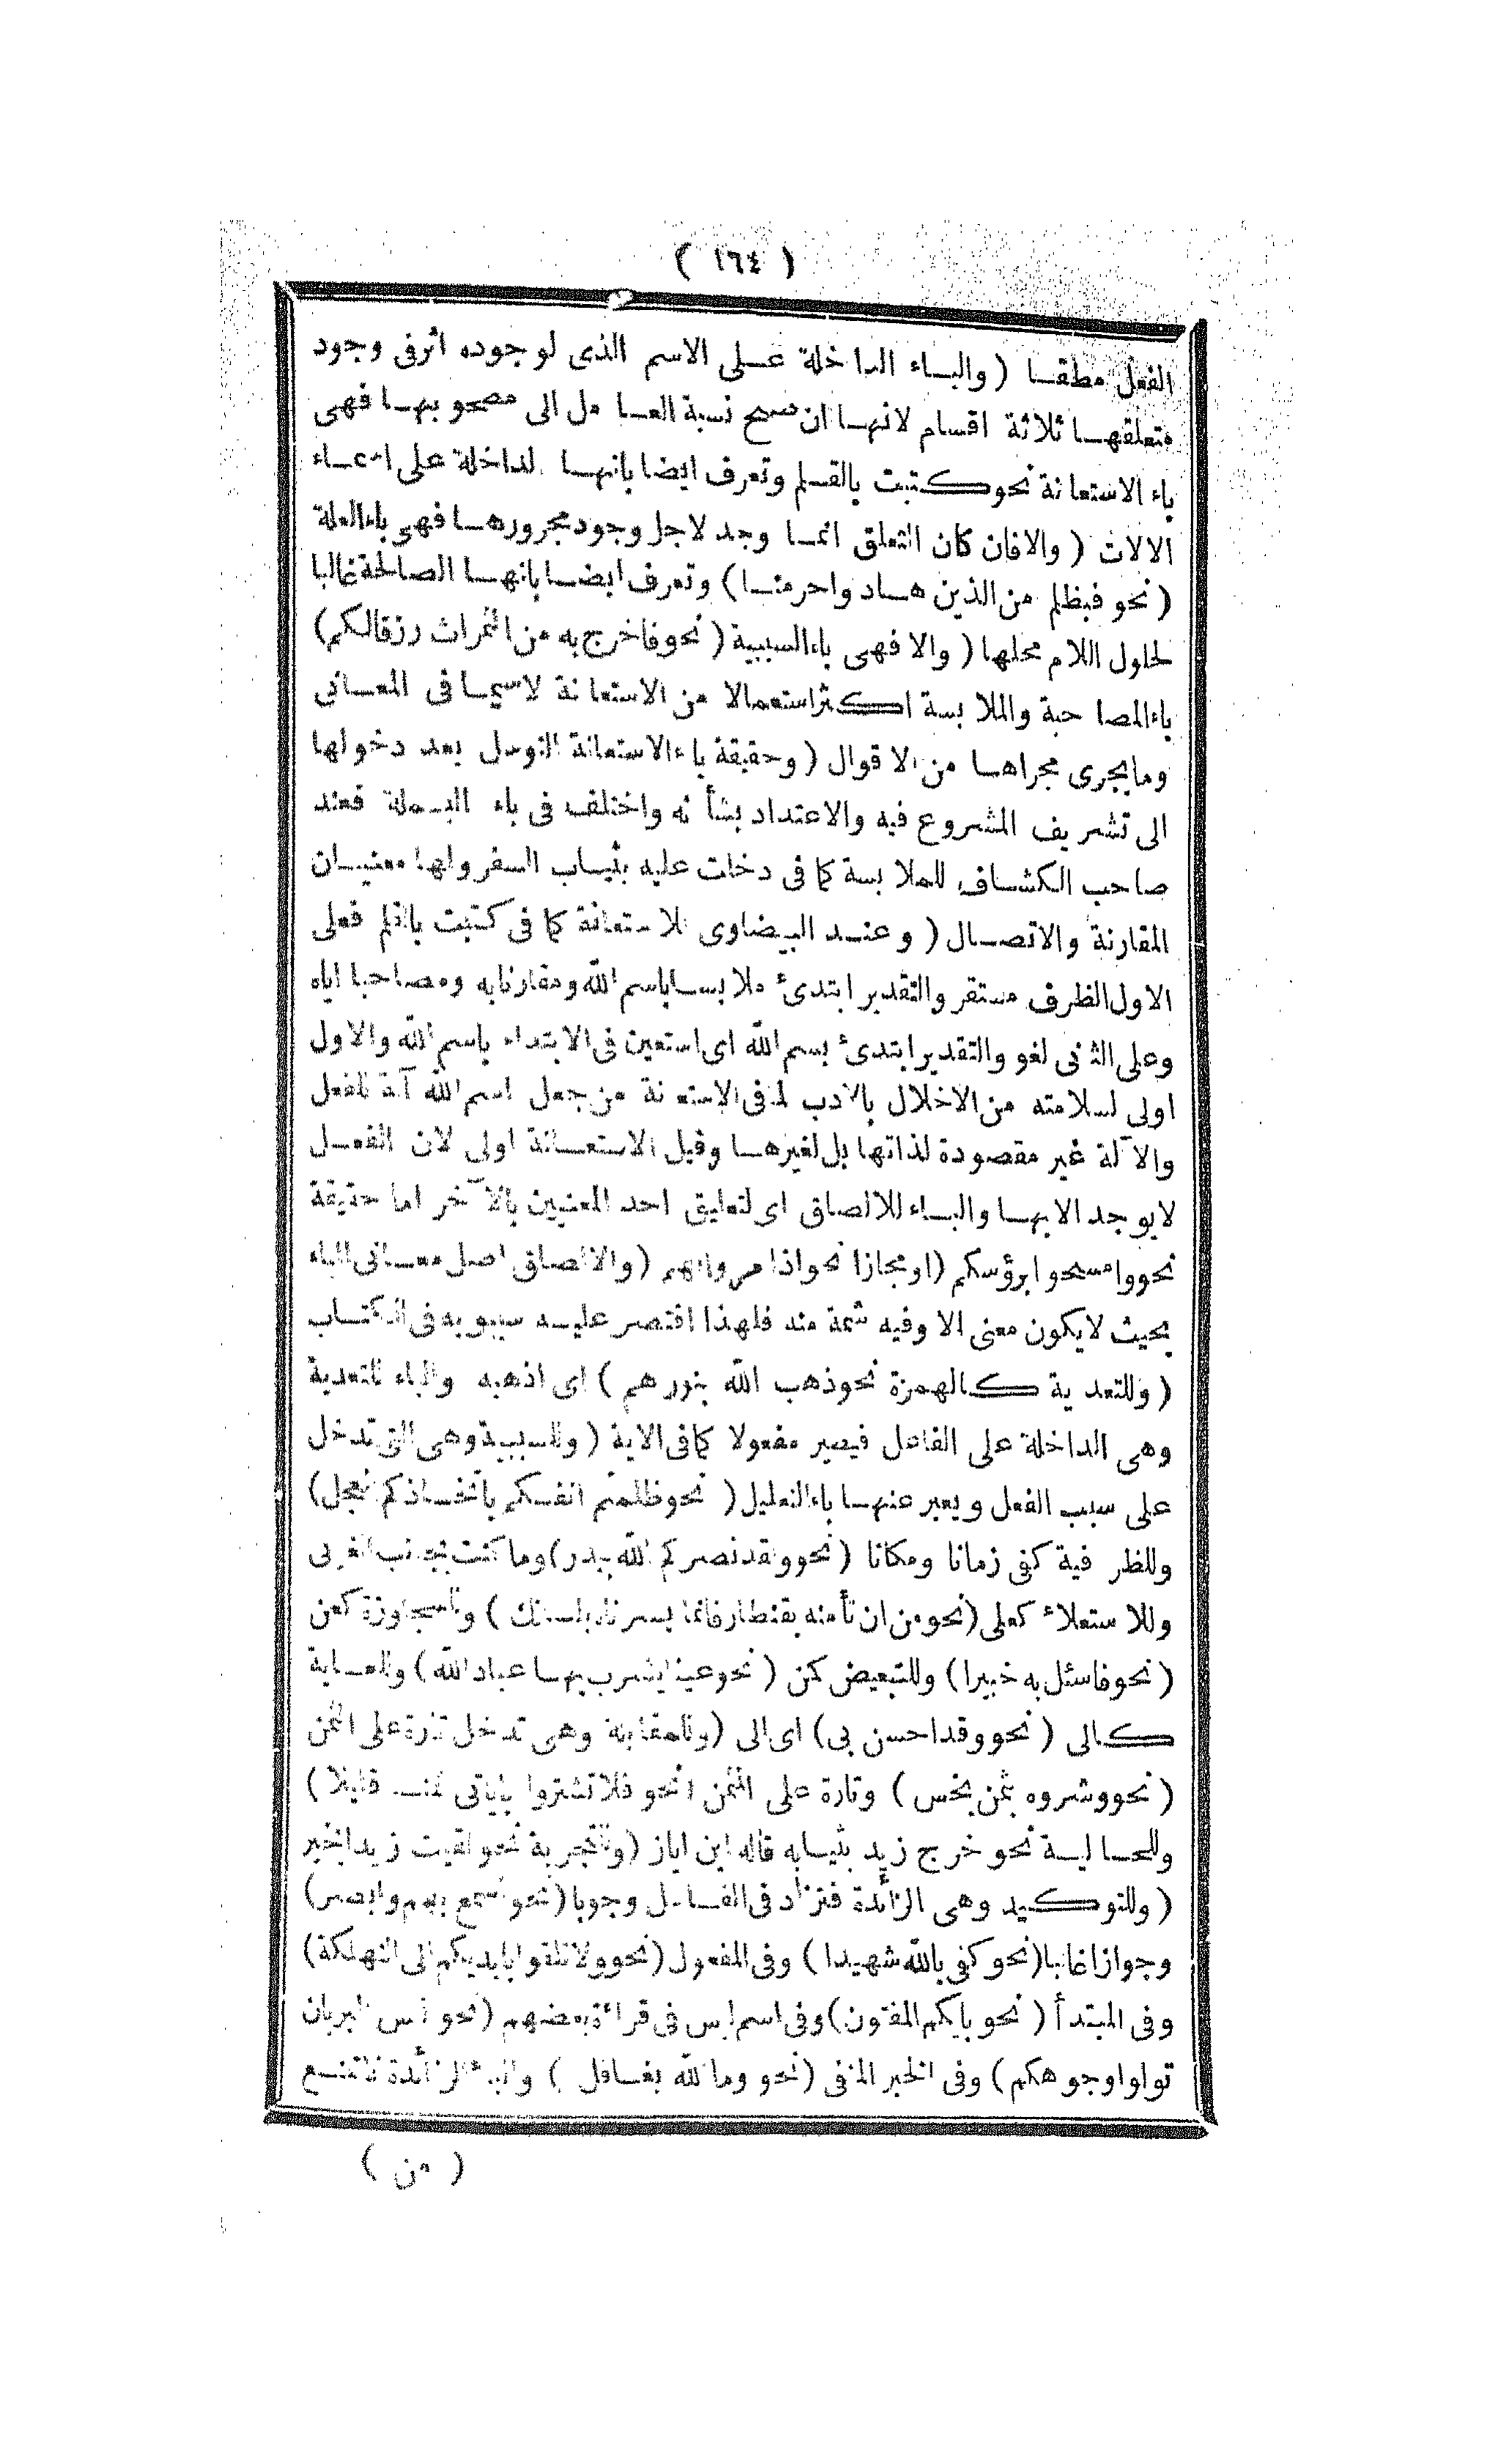 ( ١٦٤ )
الفعل مطلقا ( والباء الداخلة على الاسم الذى لوجوده اثر فى وجود
متعلقها ثلاثة اقسام لانها ان صح نسبة العامل الى مصحوبها فهى
باء الاستعانة نحو كتبت بالقلم وتعرف ايضا بانها الداخلة على اسماء
الالات ( والا فان كان التعلق انما وجد لاجل وجود مجرورها فهى باء العلة
( نحو فبظلم من الذين هادوا حرمنا ) وتعرف ايضا بانها الصالحة غالبا
لحلول اللام محلها ( والا فهى باء السببية ( نحو فاخرج به من الثمرات رزقا لكم )
باء المصاحبة والملابسة اكثر استعمالا من الاستعانة لاسيما فى المعانى
وما يجرى مجراها من الاقوال ( وحقيقة باء الاستعانة التوسل بعد دخولها
الى تشريف المشروع فيه والاعتداد بشأنه واختلف فى باء البسملة فعند
صاحب الكشاف للملابسة كما فى دخلت عليه بثياب السفر ولها معنيان
المقارنة والاتصال ( وعند البيضاوى للاستعانة كما فى كتبت بالقلم فعلى
الاول الظرف مستقر والتقدير ابتدئ ملابسا باسم الله ومقارنا به ومصاحبا اياه
وعلى الثانى لغو والتقدير ابتدئ بسم الله اى استعين فى الابتداء باسم الله والاول
اولى لسلامته من الاخلال بالادب لما فى الاستعانة من جعل اسم الله آلة للفعل
والآلة غير مقصودة لذاتها بل لغيرها وقيل الاستعانة اولى لان الفعل
لا يوجد الا بها والباء للالصاق اى لتعليق احد المعنيين بالآخر اما حقيقة
نحو وامسحوا برؤسكم ( او مجازا نحو اذا مروا بهم ( والالصاق اصل معانى الباء
بحيث لا يكون معنى الا وفيه شمة منه فلهذا اقتصر عليه سيبويه فى الكتاب
( وللتعدية كالهمزة نحو ذهب الله بنورهم ) اى اذهبه والباء للتعدية
وهى الداخلة على الفاعل فيصير مفعولا كما فى الاية ( وللسببية وهى التى تدخل
على سبب الفعل ويعبر عنها باء التعليل ( نحو ظلمتم انفسكم باتخاذكم العجل )
وللظرفية كفى زمانا ومكانا ( نحو ولقد نصركم الله ببدر ) وما كنت بجانب الغربى
وللاستعلاء كعلى ( نحو من ان تأمنه بقنطار فانما يسرناه بلسانك ) وللمجاوزة كعن
( نحو فاسئل به خبيرا ) وللتبعيض كمن ( نحو عينا يشرب بها عباد الله ) وللغاية
كالى ( نحو وقد احسن بى ) اى الى ( وللمقابلة وهى تدخل تارة على الثمن
( نحو وشروه بثمن بخس ) وتارة على المثمن ( نحو فلا تشتروا بآياتى ثمنا قليلا )
وللحالية نحو خرج زيد بثيابه قاله ابن اياز ( وللتجريد نحو لقيت زيد الخير
( وللتوكيد وهى الزائدة فتزاد فى الفاعل وجوبا ( نحو اسمع بهم وابصر )
وجوازا غالبا ( نحو كفى بالله شهيدا ) وفى المفعول ( نحو ولا تلقوا بايديكم الى التهلكة )
وفى المبتدأ ( نحو بايكم المفتون ) وفى اسم ليس فى قراءة بعضهم ( نحو ليس البر بان
تولوا وجوهكم ) وفى الخبر المنفى ( نحو وما الله بغافل ) والباء الزائدة لا تمنع
( من )